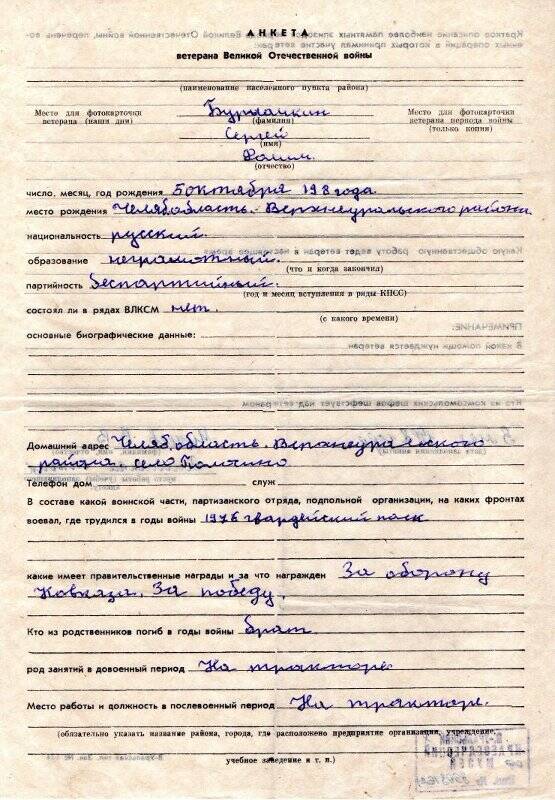 АНКЕТА
ветерана Великой Отечественной войны
(наименование населенного пункта района)
Место для фотокарточки
ветерана (наши дни)
Место для фотокарточки
ветерана периода войны
(только копия)
(фамилия)
Сергей
(имя)
(отчество)
число, месяц, год рождения 5 октября 198 года
место рождения Челябобласть. Верхнеуральского района
национальность русский.
образование неграмотный.
(что и когда закончил)
партийность беспартийный.
(год и месяц вступления в ряды КПСС)
состоял ли в рядах ВЛКСМ нет.
(с какого времени)
основные биографические данные:
Домашний адрес Челяб.область. Верхнеуральского
района, село
Телефон дом служ
В составе какой воинской части, партизанского отряда, подпольной организации, на каких фронтах
воевал, где трудился в годы войны 1976 гвардейский полк
какие имеет правительственные награды и за что награжден За оборону
Кавказа. За победу.
Кто из родственников погиб в годы войны брат
род занятий в довоенный период На тракторе
Место работы и должность в послевоенный период На тракторе.
(обязательно указать название района, города, где расположено предприятие организация, учреждение,
учебное заведение и т. п.)